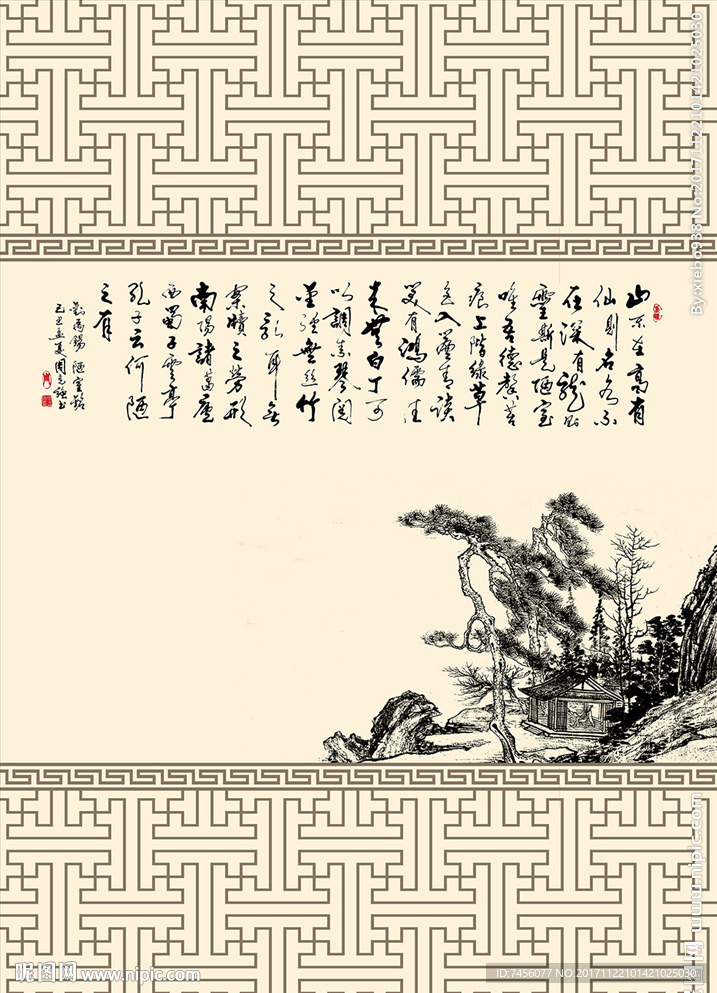 山不在高有
仙則名水不
在深有龍則
靈斯是陋室
唯吾德馨苔
痕上階綠草
色入簾青談
笑有鴻儒往
來無白丁可
以調素琴閱
金經無絲竹
之亂耳無
案牘之勞形
南陽諸葛廬
西蜀子雲亭
孔子云何陋
之有
劉禹錫 陋室銘
By:xiebo988 No:20171122101421025030
昵图网 www.nipic.com
www.nipic.com
ID:7456077 NO:20171122101421025030